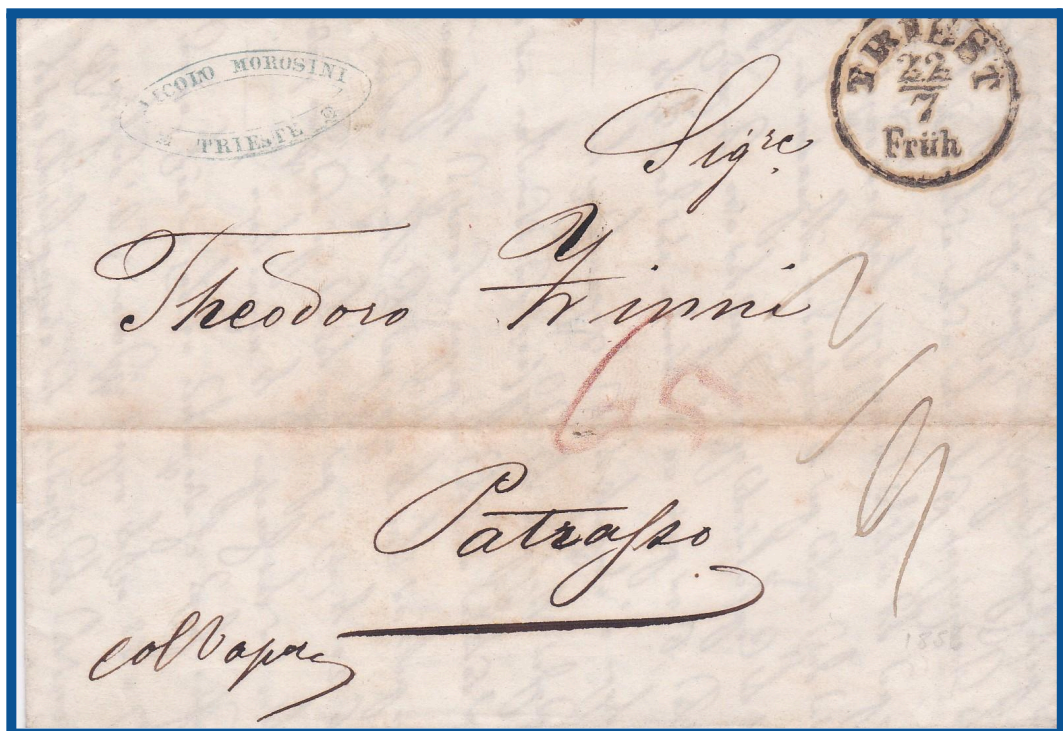 NICOLO MOROSINI
TRIESTE
TRIEST
22
7
Früh
Sigre
Theodoro
65
Patrasso
col Vapre